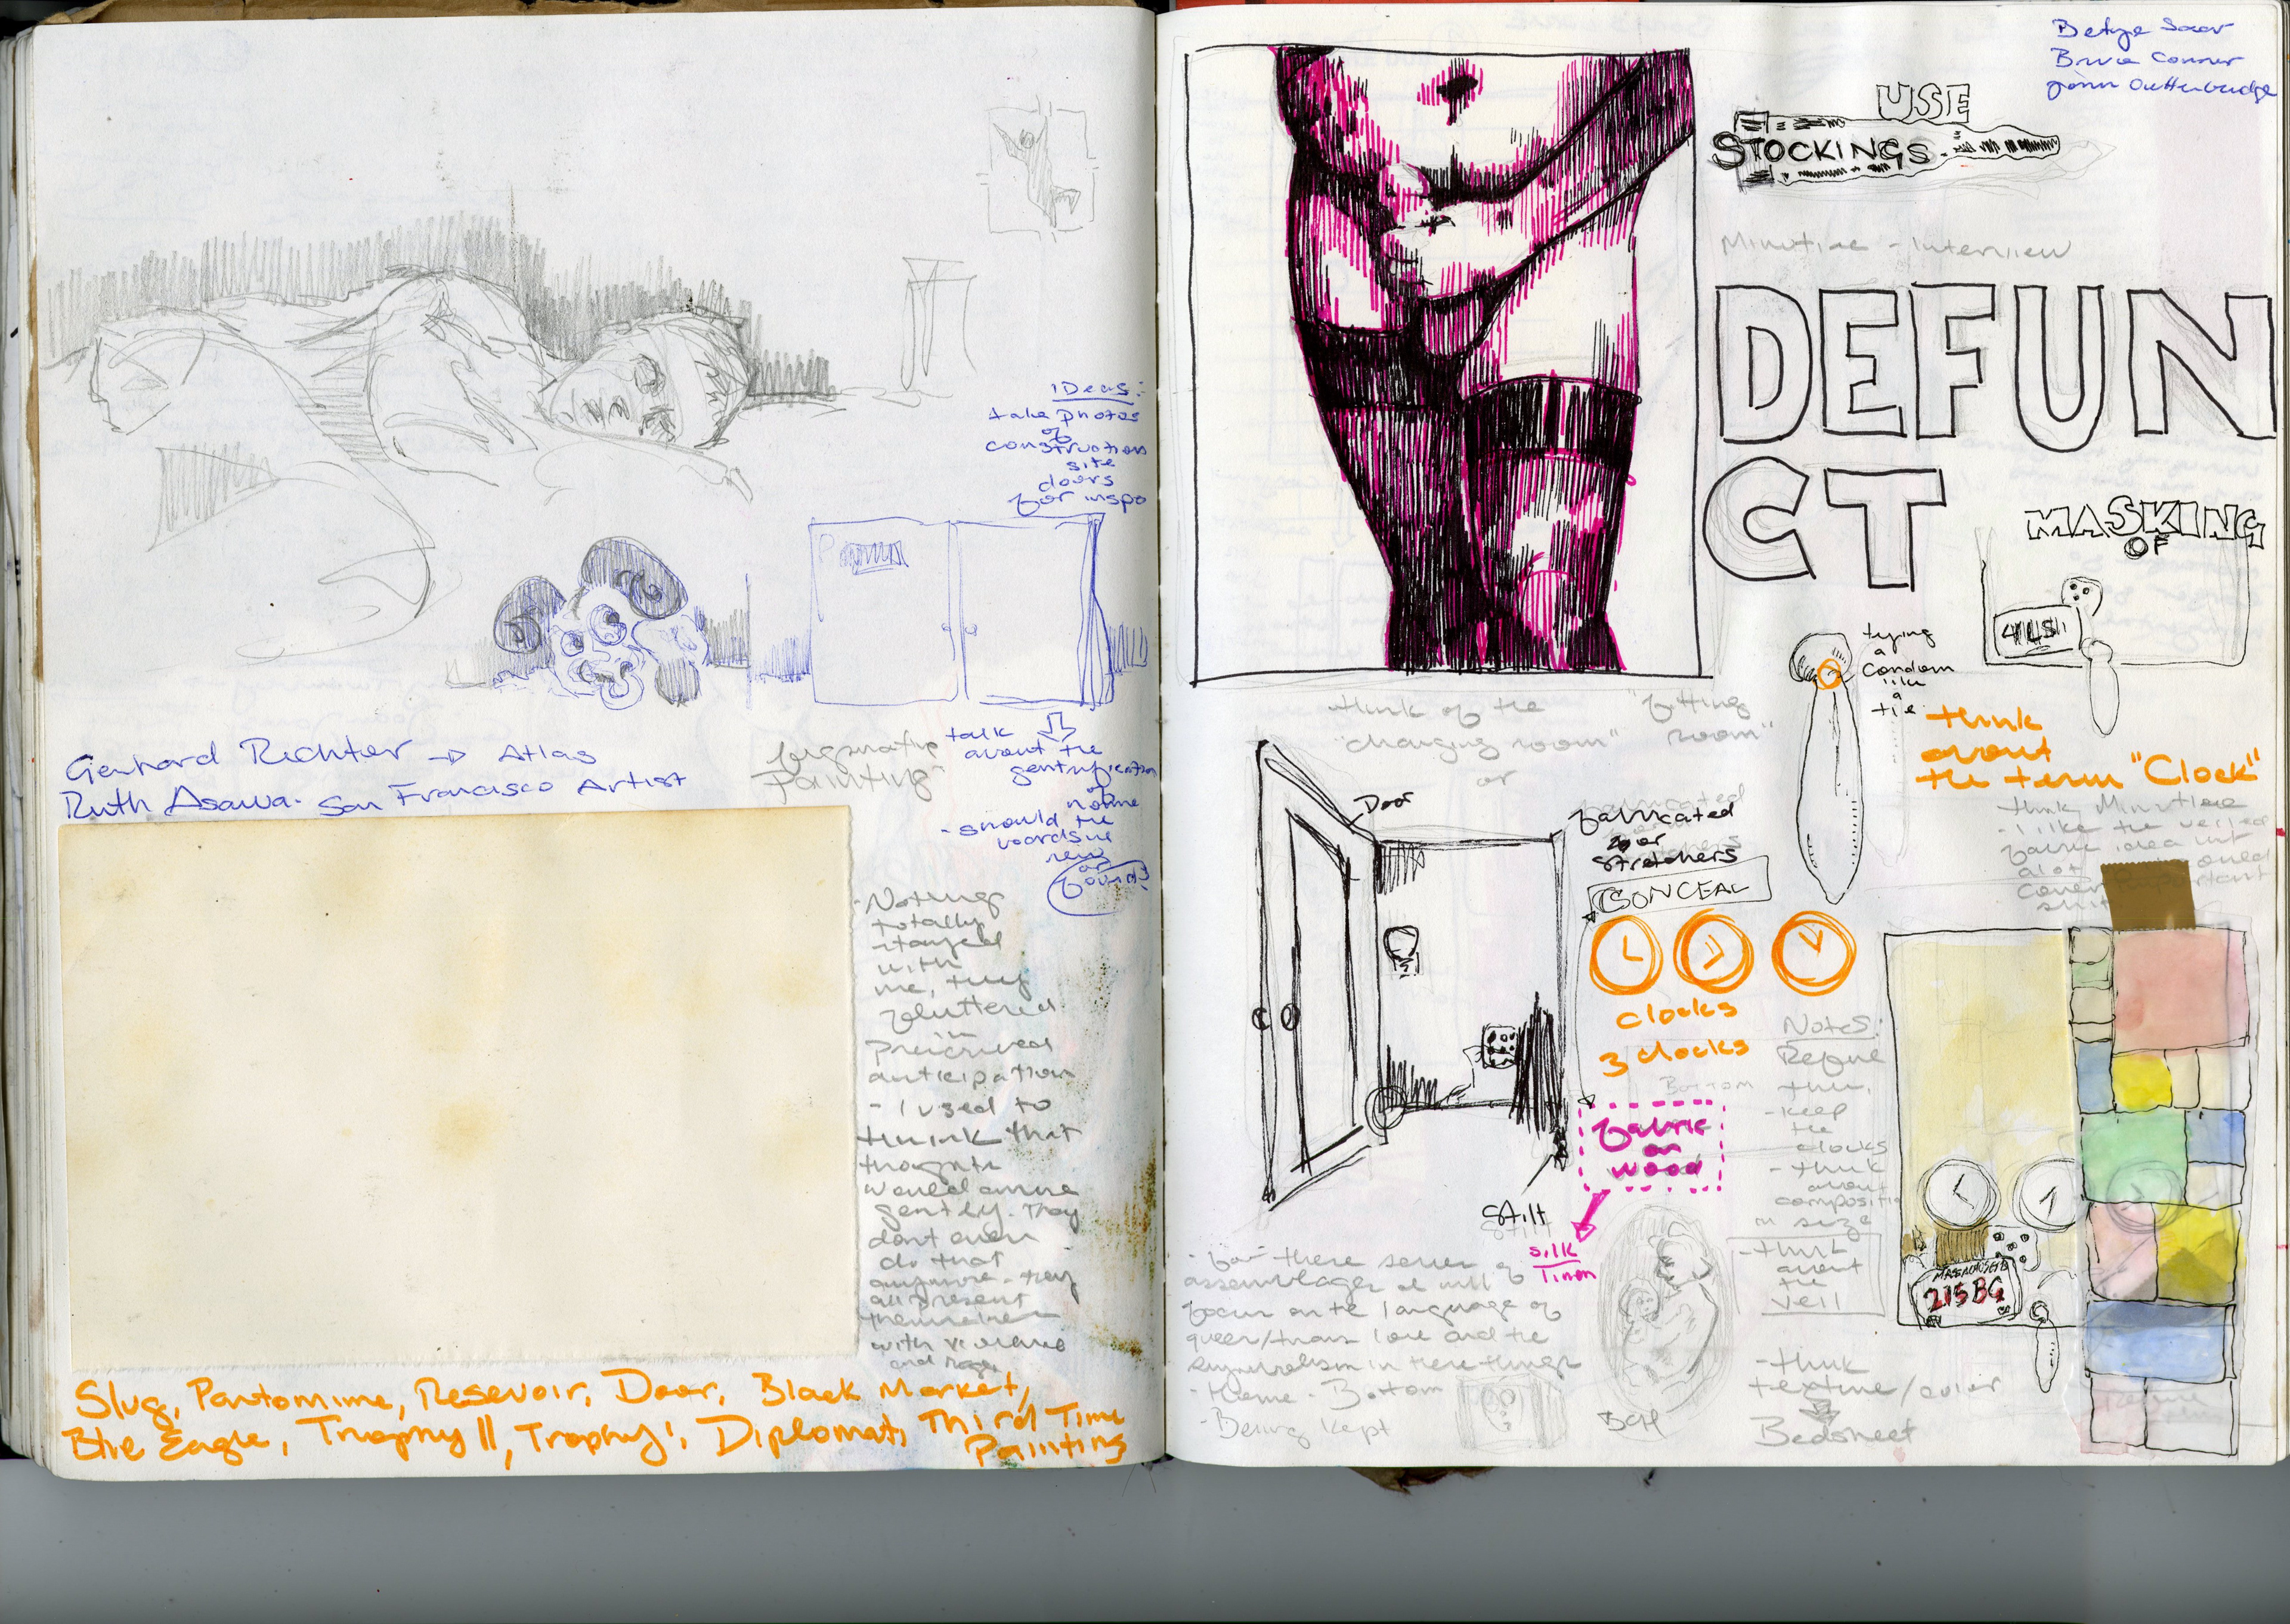 IDeas:
take photos
of
construction
site
doors
for inspo
Gerhard Richter → Atlas
Ruth Asawa. San Francisco Artist
Painting
talk
about the
gentrification
of
home
- should the
boards be
new
or
found?
- Nothing
totally
stayed
with
me, they
fluttered
in
anticipation
- I used to
think that
thoughts
would arrive
gently. They
dont even
do that
anymore - they
all present
themselves
with violence
and rage
Slug, Pantomime, Resevoir, Door, Black Market,
Ble Eagle, Trophy II, Trophy I, Diplomat, Third Time
Painting
Betye Saar
Bruce Conner
John Outterbridge
USE
STOCKINGS
Minutiae - Interview
DEFUN
CT
MASKING
OF
tying
a
condom
like
a
tie
think
about
the term "Clock"
think Minutiae
- I like the veiled
fabric idea but
alot
cover important
shit
think of the "fitting
"changing room" room"
or
Door
fabricated
for
stretchers
CONCEAL
clocks
3 clocks
Bottom
fabric
on
wood
silk
linen
Stilt
Notes:
Refine
this.
- keep
the
clocks
- think
about
composition
in size
- think
about
the
veil
- think
texture/color
Bedsheet
- for these series of
assemblages I will
focus on the language of
queer/trans love and the
in these things
- theme - Bottom
- Being kept
MASSACHUSETTS
215 BG